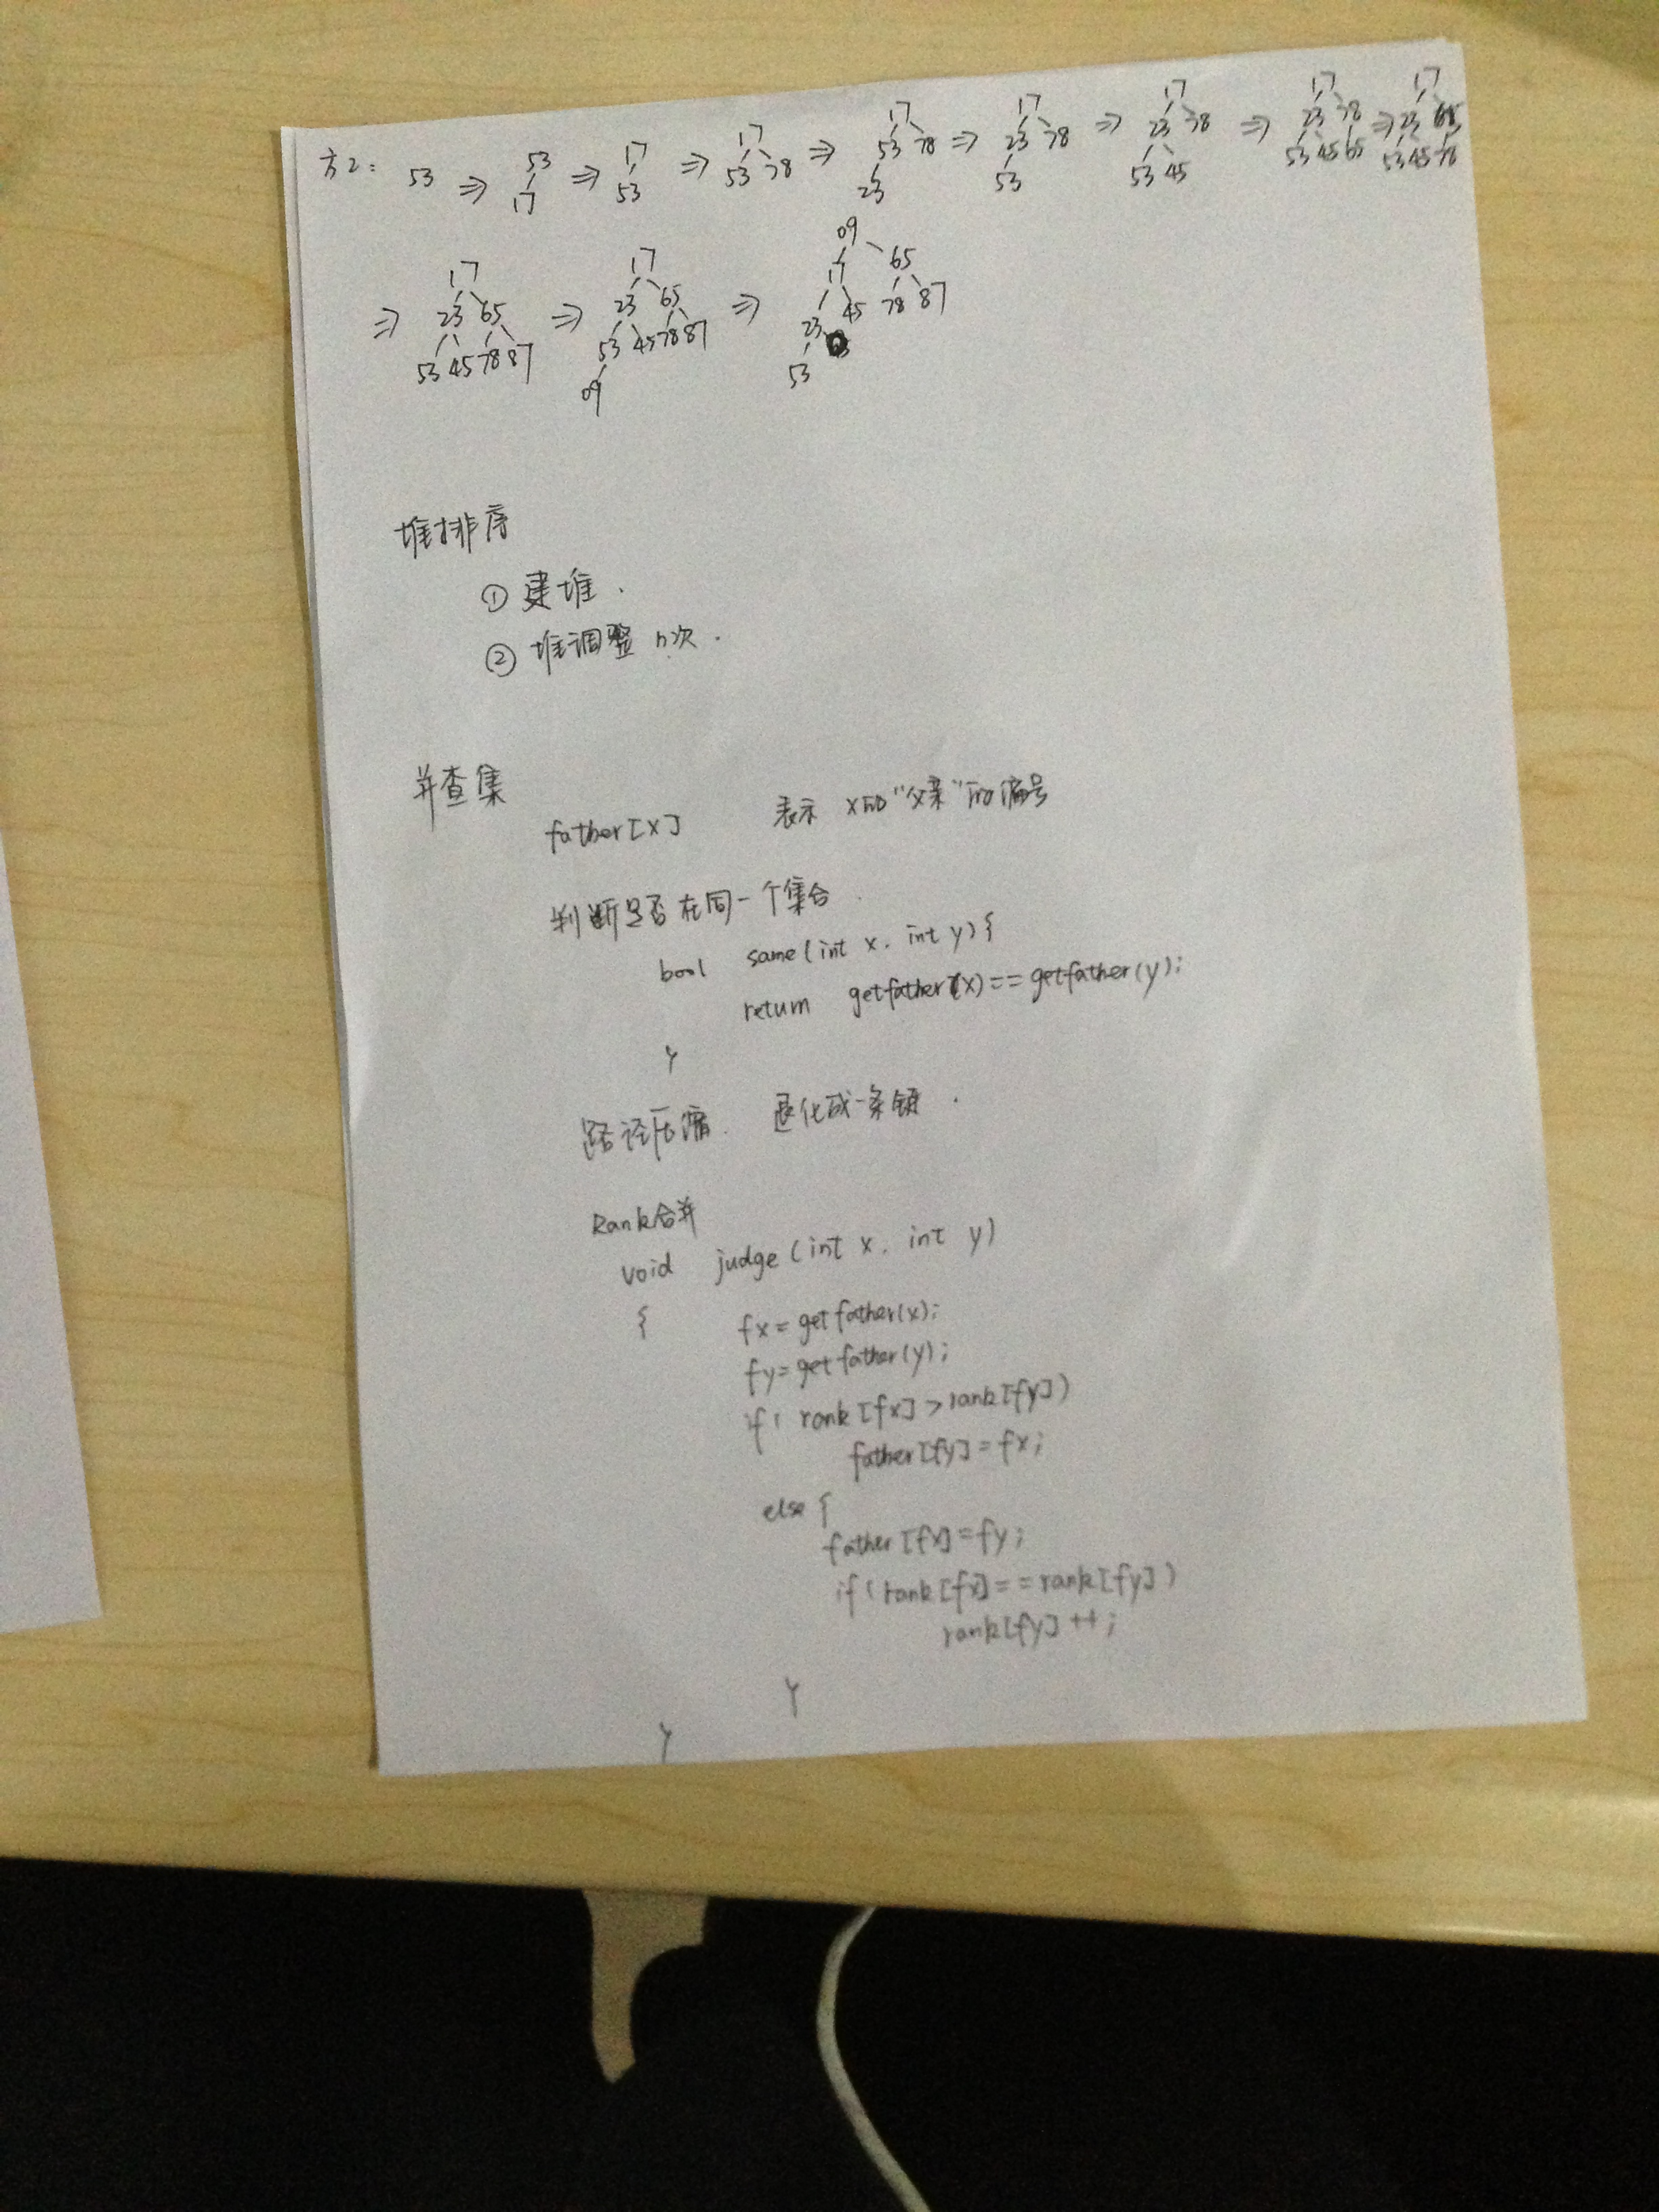 方2: 53 ⇒ 53 17 ⇒ 17 53 ⇒ 17 53 78 ⇒ 17 53 78 23 ⇒ 17 23 78 53 ⇒ 17 23 78 53 45 ⇒ 17 23 78 53 45 65 ⇒ 17 23 65 53 45 78
⇒ 17 23 65 53 45 78 87 ⇒ 17 23 65 53 45 78 87 09 ⇒ 09 17 65 23 45 78 87 53
堆排序
① 建堆.
② 堆调整 n次.
并查集
father[x] 表示 x的"父亲"的编号
判断是否在同一个集合.
bool same(int x, int y){
return getfather(x)==getfather(y);
}
路径压缩. 退化成一条链.
Rank合并
void judge(int x, int y)
{ fx = getfather(x);
fy = getfather(y);
if( rank[fx] > rank[fy])
father[fy] = fx;
else {
father[fx] = fy;
if( rank[fx] == rank[fy])
rank[fy]++;
}
}